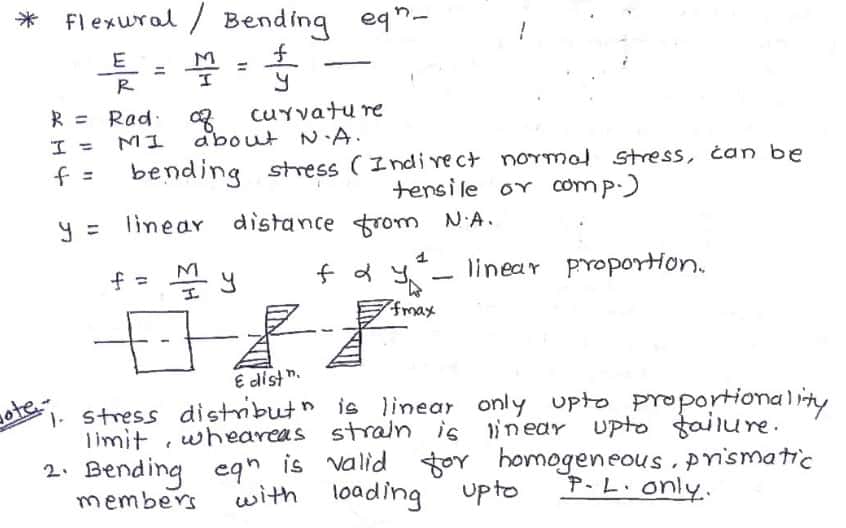 * Flexural / Bending eqn-
E/R = M/I = f/y —
R = Rad. of curvature
I = MI about N.A.
f = bending stress (Indirect normal stress, can be
tensile or comp.)
y = linear distance from N.A.
f = M/I y f α y¹ – linear proportion.
fmax
ε distn.
Note- 1. stress distributn is linear only upto proportionality
limit, wheareas strain is linear upto failure.
2. Bending eqn is valid for homogeneous, prismatic
members with loading upto P.L. only.